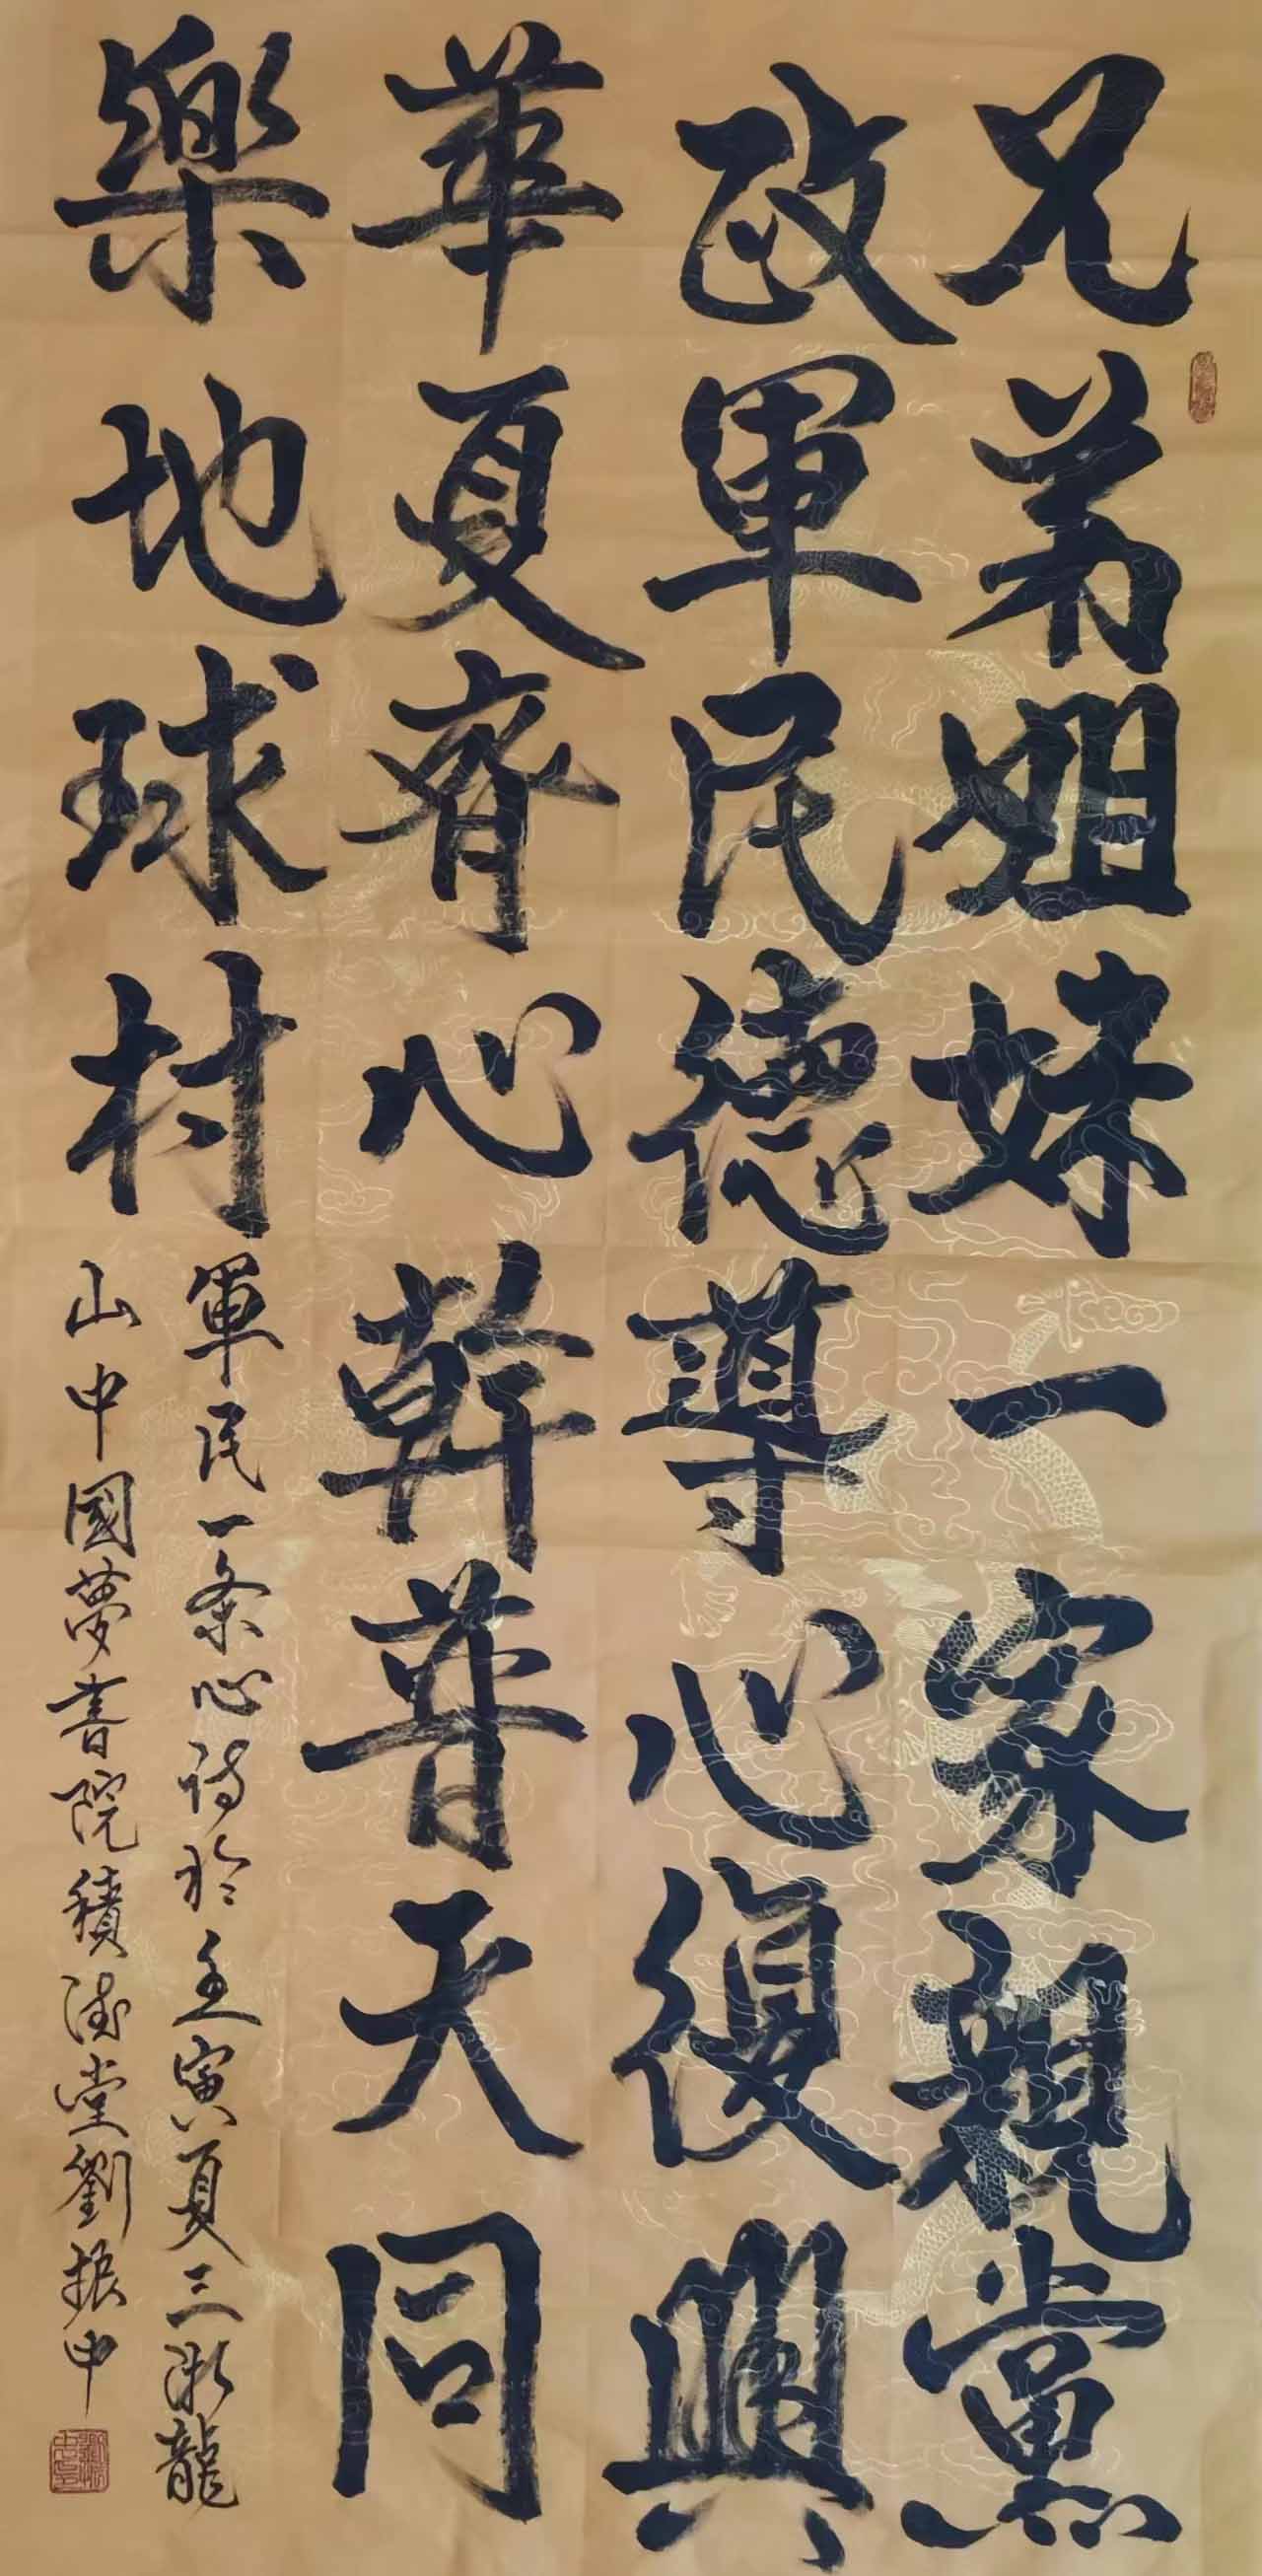 兄弟姐妹一家親黨
政軍民德導心復興
華夏齊心幹普天同
樂地球村
軍民一条心詩於壬寅夏三浙龍
山中國夢書院積德堂劉振中